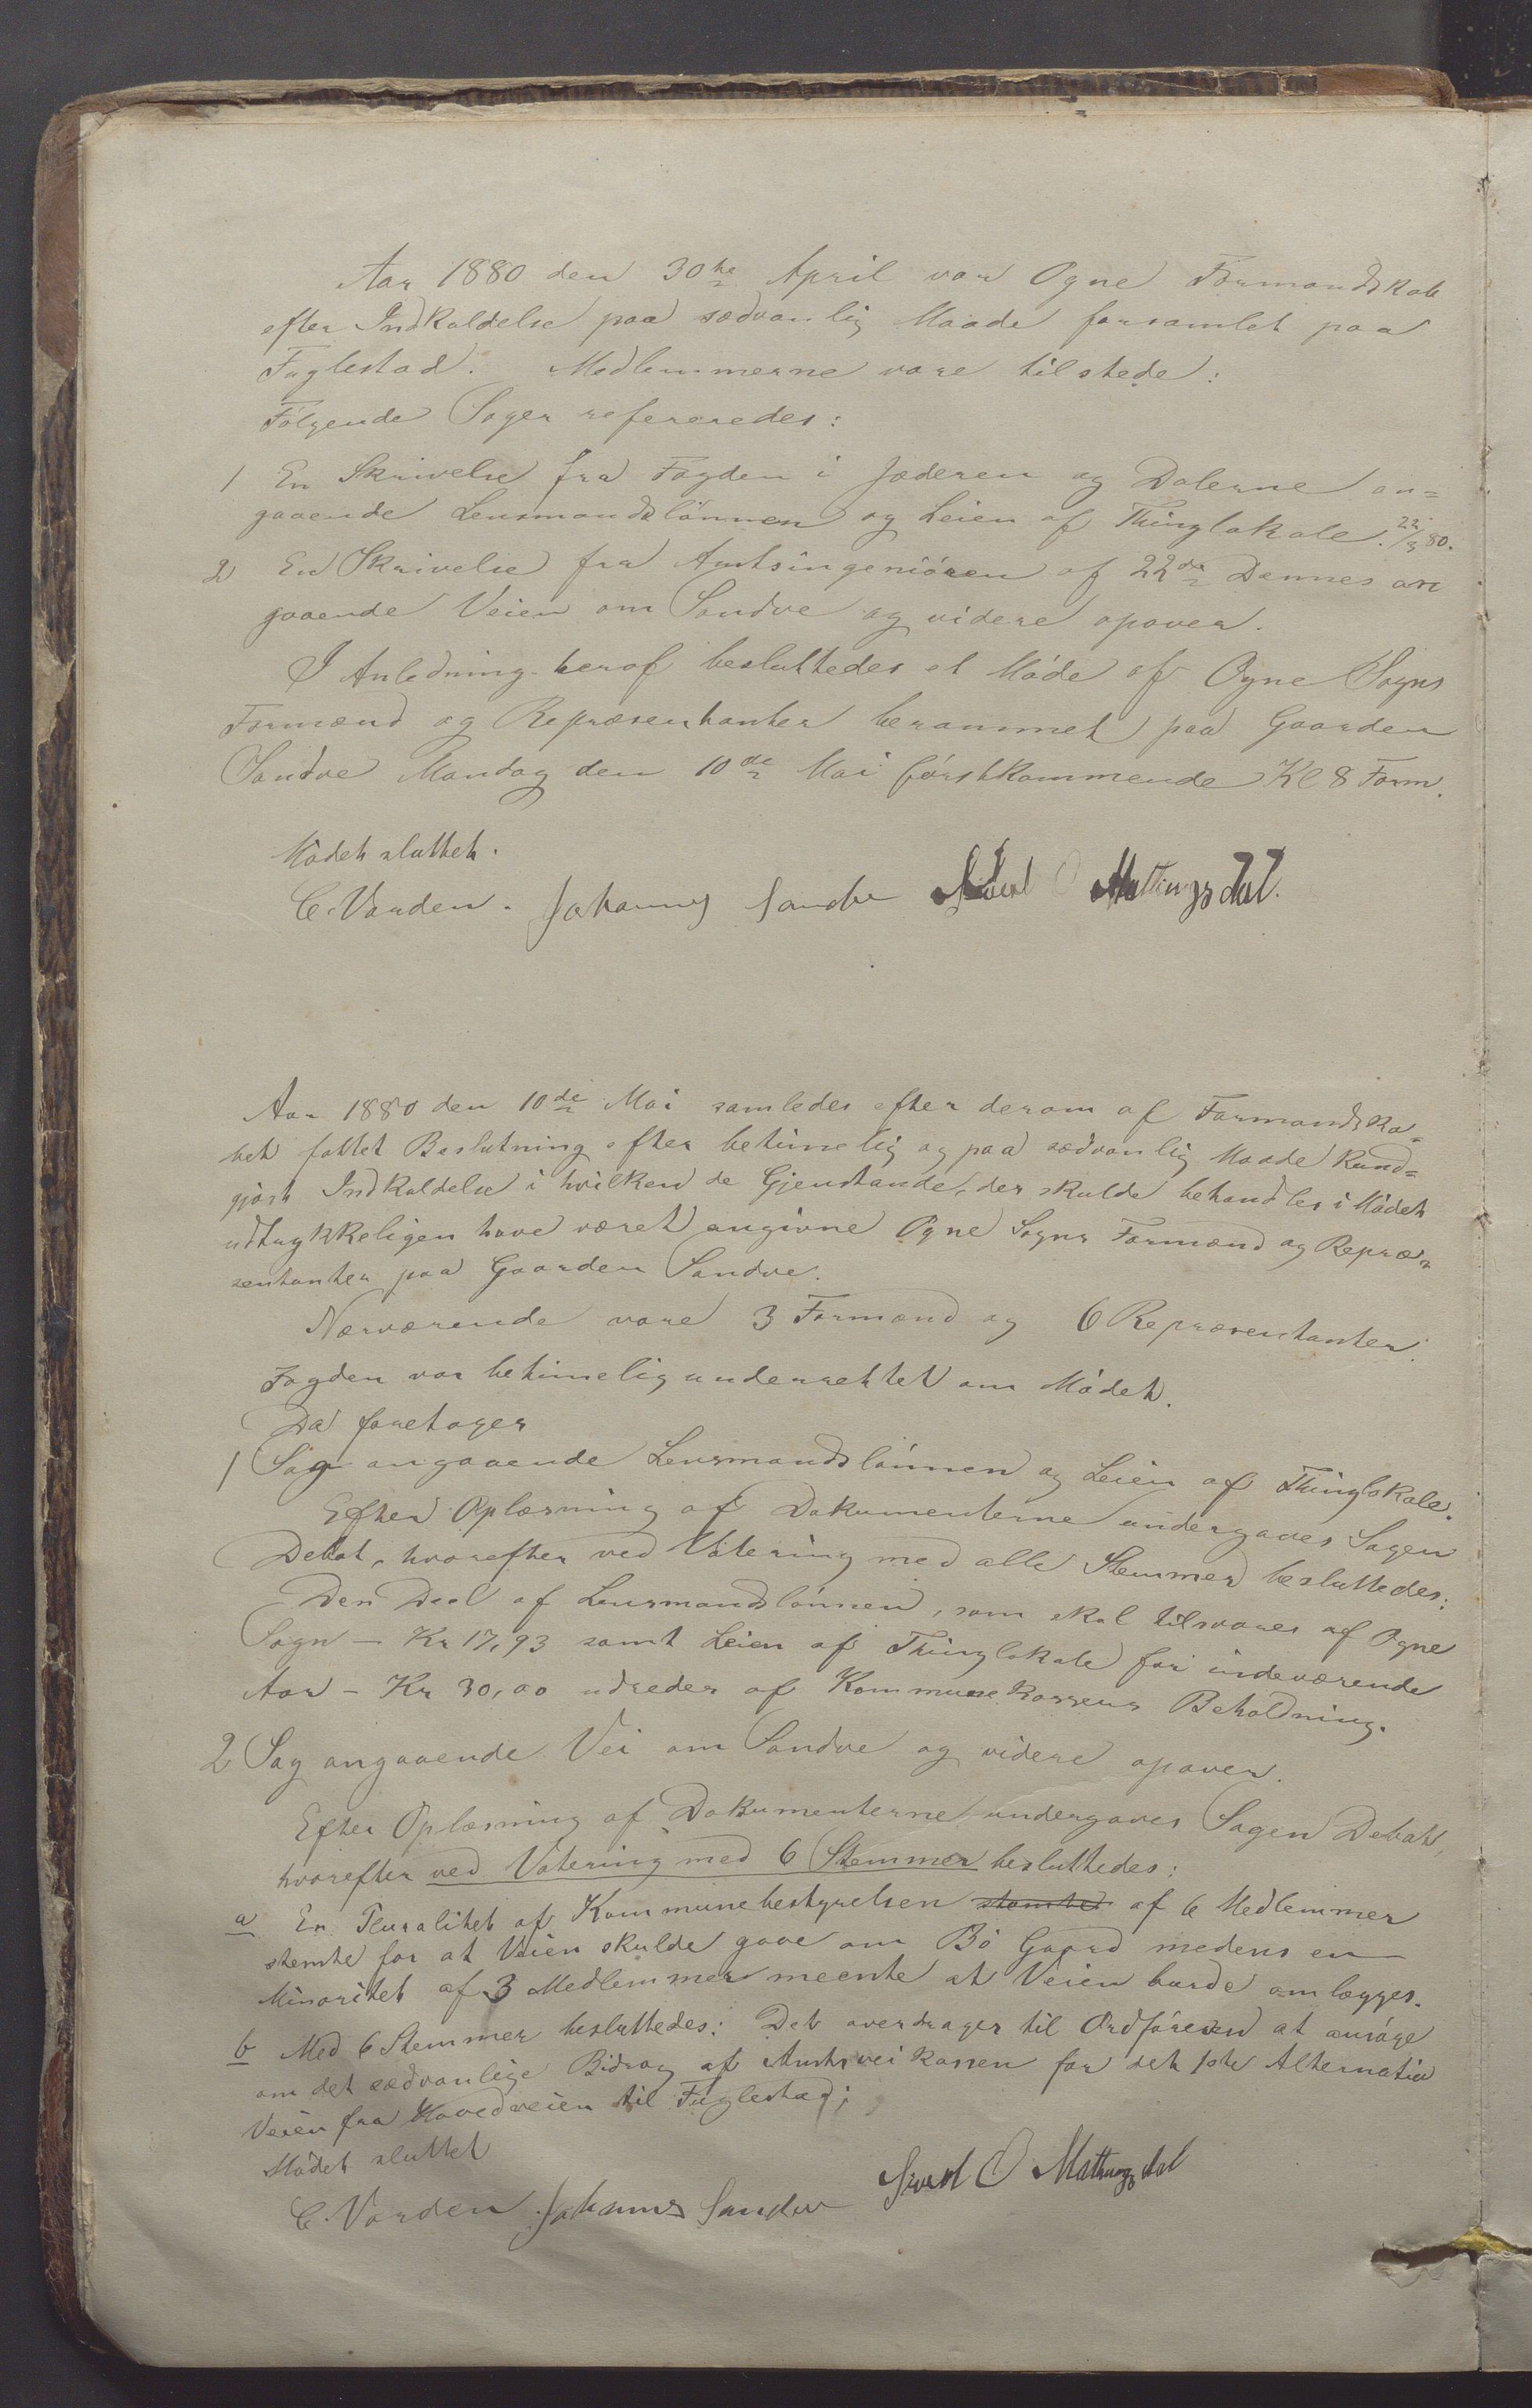 Aar 1880 den 30te April var Ogne Formandskab
efter Indkaldelse paa sædvanlig Maade forsamlet paa
Fuglestad. Medlemmerne vare tilstede:
Følgende Sager refereredes:
1 En Skrivelse fra Fogden i Jæderen og Dalerne an=
gaaende Lensmandslønnen og Leien af Thinglokale. 22/3 80.
2 En Skrivelse fra Amtsingeniøren af 22de Dennes an
gaaende Veien om Sandve og videre opover.
I Anledning heraf besluttedes et Møde af Ogne Sogns
Formænd og Repræsentanter berammet paa Gaarden
Sandve Mandag den 10de Mai førstkommende Kl 8 Form.
Mødet sluttet.
C. Varden. Johannes Sandve Sivert O Mattingsdal.
Aar 1880 den 10de Mai samledes efter derom af Formandska=
bet fattet Beslutning efter betimelig og paa sædvanlig Maade Kund=
gjort Indkaldelse i hvilken de Gjenstande, der skulde behandles i Mødet
udtrykkeligen have været angivne Ogne Sogns Formænd og Repræ=
sentanter paa Gaarden Sandve.
Nærværende vare 3 Formænd og 6 Repræsentanter.
Fogden var betimelig underrettet om Mødet.
Da foretoges
1 Sag angaaende Lensmandslønnen og Leien af Thinglokale.
Efter Oplæsning af Dokumenterne undergaves Sagen
Debat, hvorefter ved Votering med alle Stemmer besluttedes:
Den Deel af Lensmandslønnen, som skal tilsvares af Ogne
Sogn - Kr 17,93 samt Leien af Thinglokale for indeværende
Aar - Kr 30,00 udredes af Kommunekassens Beholdning.
2 Sag angaaende Vei om Sandve og videre opover.
Efter Oplæsning af Dokumenterne undergaves Sagen Debat,
hvorefter ved Votering med 6 Stemmer besluttedes:
a En Pluralitet af Kommunebestyrelsen stemte af 6 Medlemmer
stemte for at Veien skulde gaae om Bø Gaard medens en
Minoritet af 3 Medlemmer meente at Veien burde omlægges.
b Med 6 Stemmer besluttedes: Det overdrages til Ordføreren at ansøge
om det sædvanlige Bidrag af Amtsveikassen for det 1ste Alternativ
Veien fra Hovedveien til Fuglestad;
Mødet sluttet
C. Varden Johannes Sandve Sivert O Mattingsdal